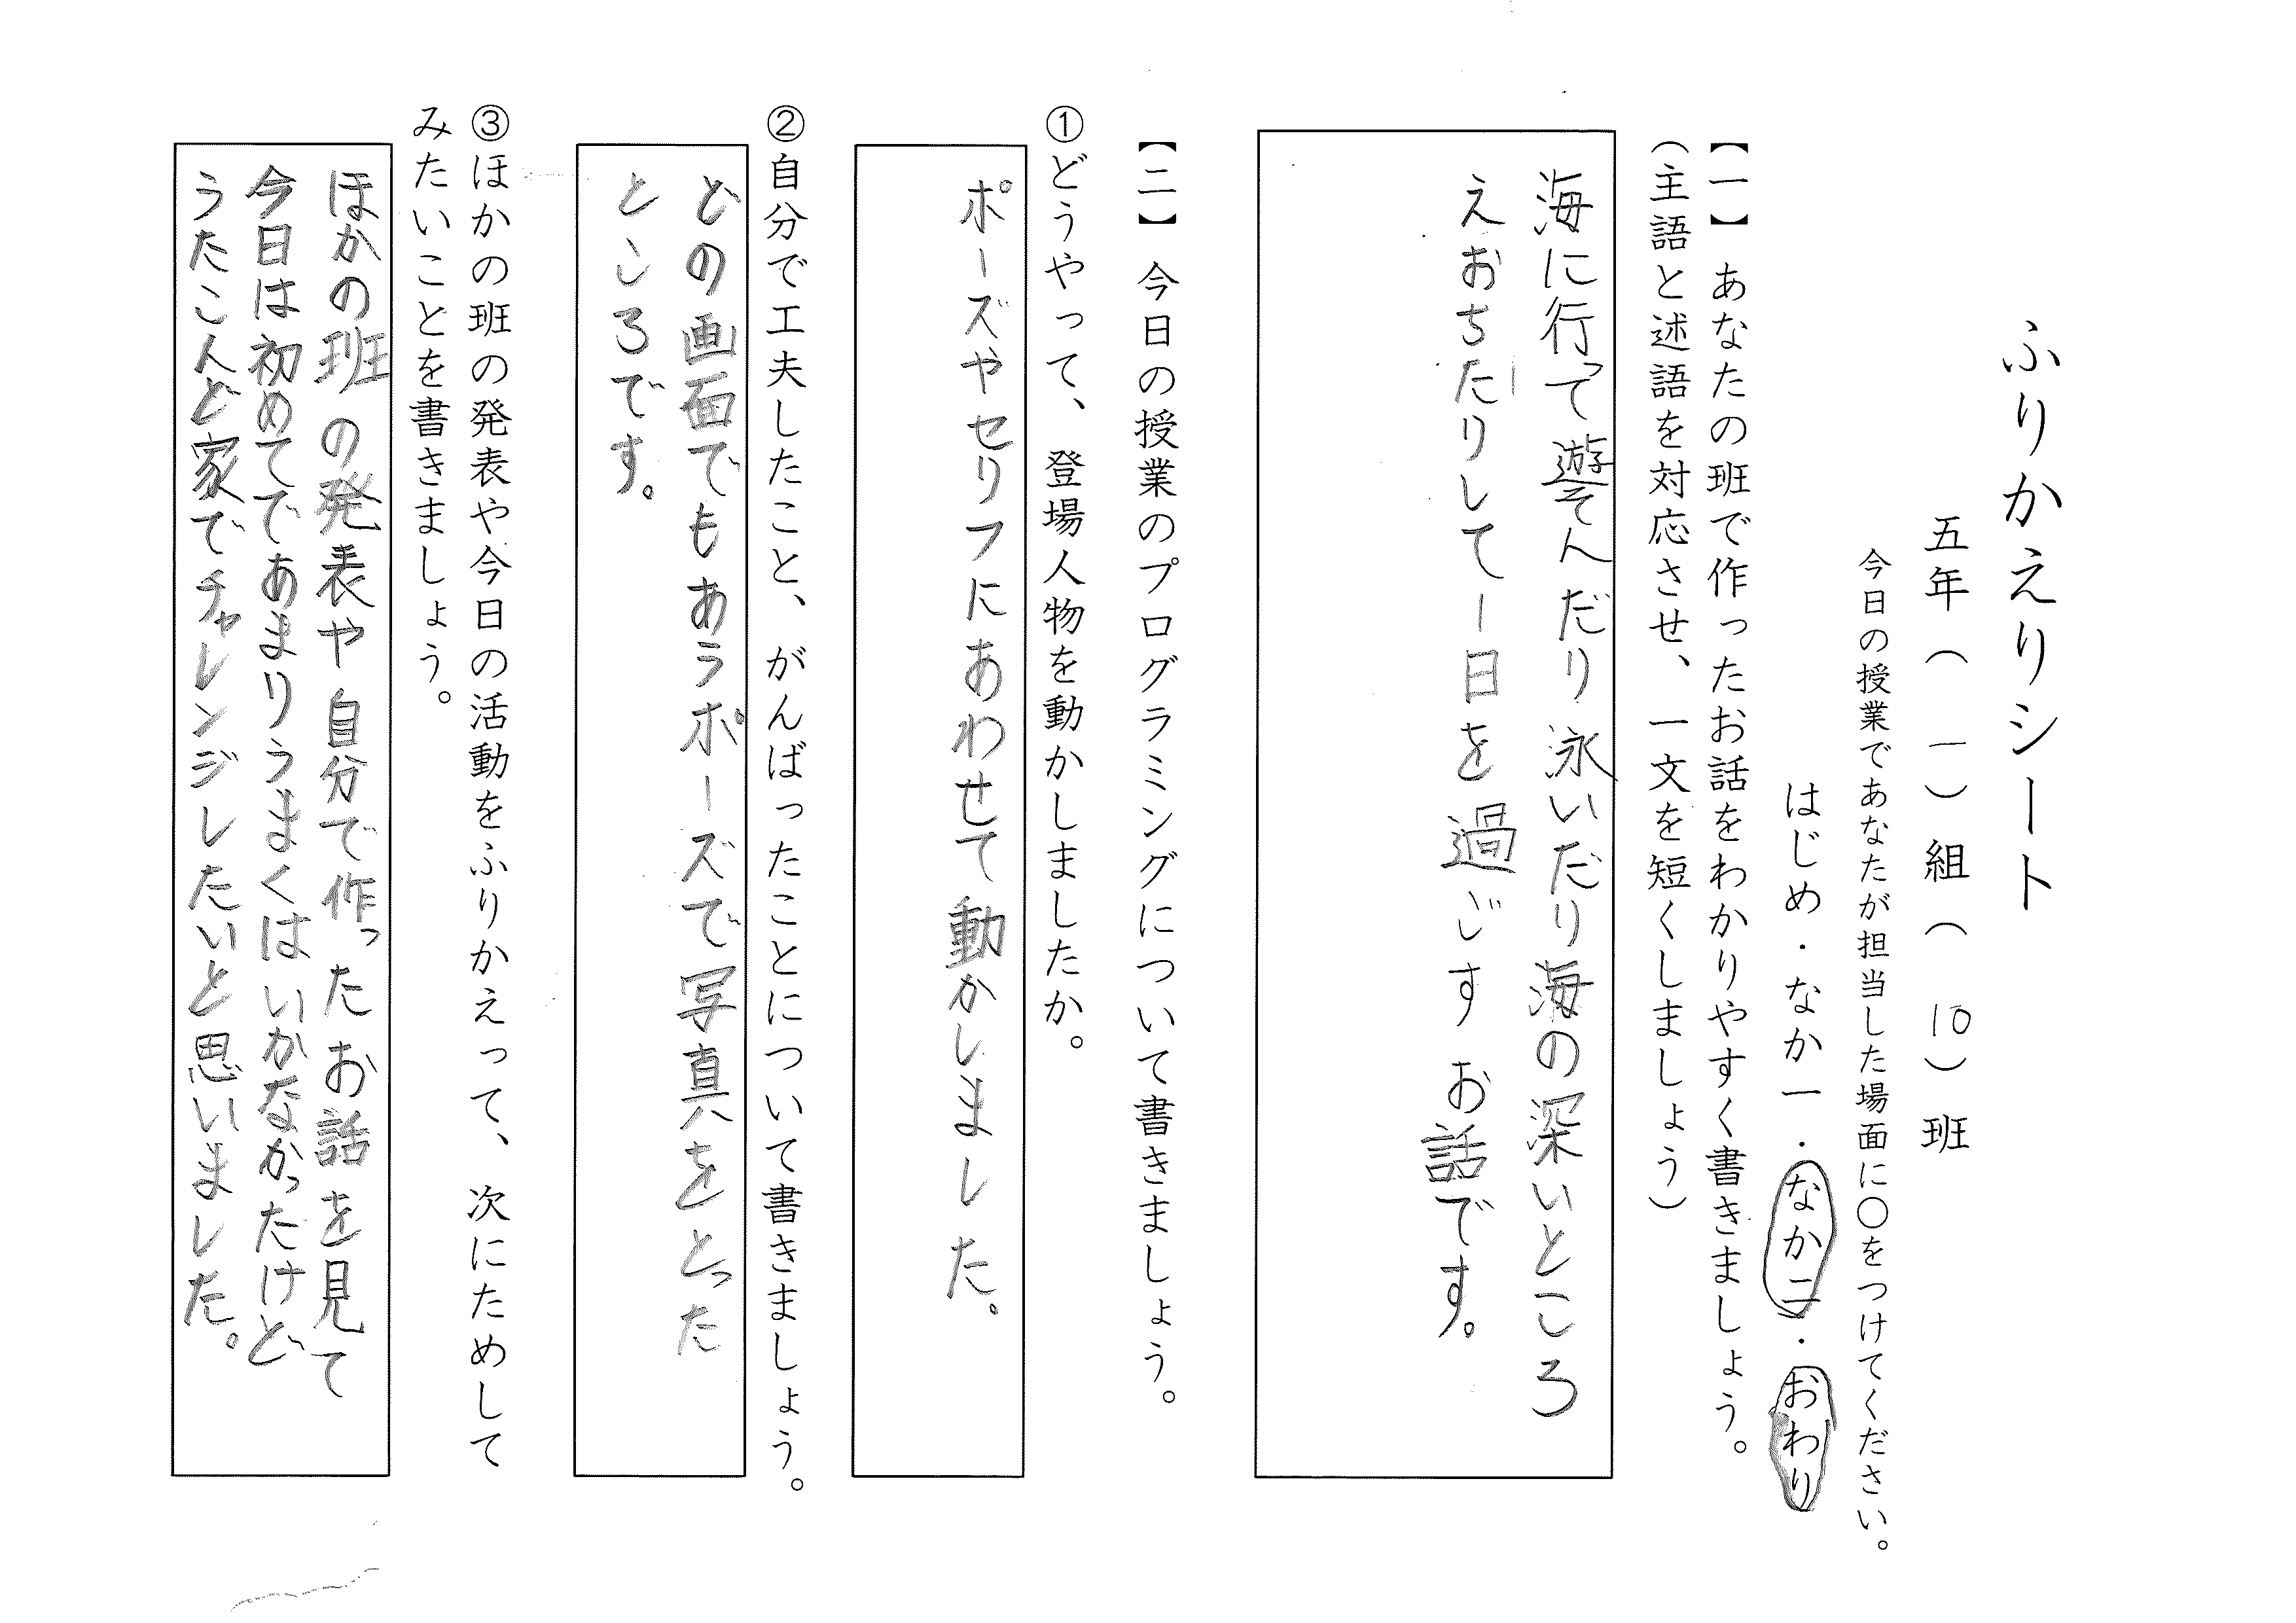 ふりかえりシート
五年（ 一 ）組（ 10 ）班
今日の授業であなたが担当した場面に〇をつけてください。
はじめ・なか一・なか二・おわり
【一】あなたの班で作ったお話をわかりやすく書きましょう。
（主語と述語を対応させ、一文を短くしましょう）
海に行って遊そんだり泳いだり海の深いところ
えおちたりして一日を過ごすお話です。
【二】今日の授業のプログラミングについて書きましょう。
①どうやって、登場人物を動かしましたか。
ポーズやセリフにあわせて動かしました。
②自分で工夫したこと、がんばったことについて書きましょう。
どの画面でもあうポーズで写真をとった
ところです。
③ほかの班の発表や今日の活動をふりかえって、次にためして
みたいことを書きましょう。
ほかの班の発表や自分で作ったお話を見て
今日は初めてであまりうまくはいかなかったけど
うたこんど家でチャレンジしたいと思いました。